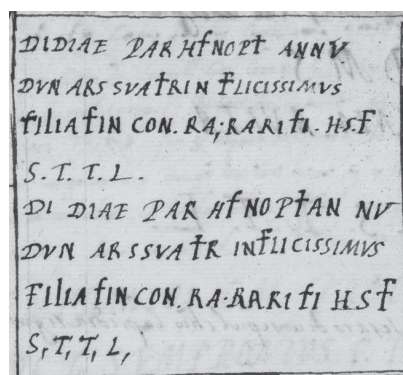 DIDIAE PARHfNOPt ANNV
DVN ARS SVAtRIN fLICISSIMVS
fILIAfIN CON. RA;RARIfI. HSf
S. T. T. L.
DI DIAE PAR HfNOPtAN NV
DVN ARSSVAtR INfLICISSIMVS
FILIAfINCON. RA-RARIfI HSf
S, T, T, L,